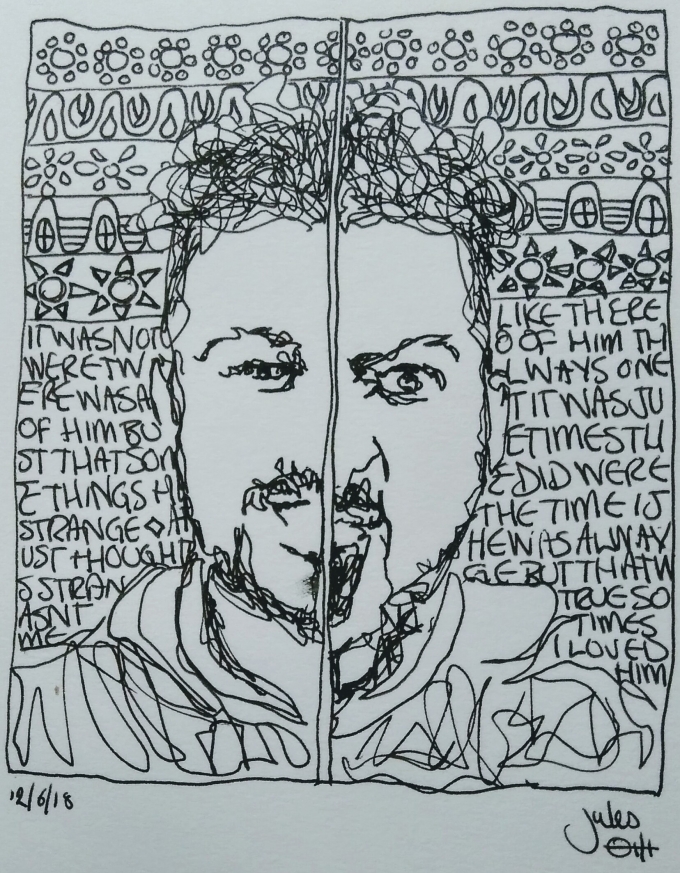 IT WAS NOT LIKE THERE
WERE TW O OF HIM TH
ERE WAS A LWAYS ONE
OF HIM BU T IT WAS JU
ST THAT SOM ETIMES TH
E THINGS H E DID WERE
STRANGE AT THE TIME I J
UST THOUGHT HE WAS ALWAY
S STRAN GE BUT THAT W
ASNT TRUE SO
ME TIMES
I LOVED
HIM
12/6/18
Jules